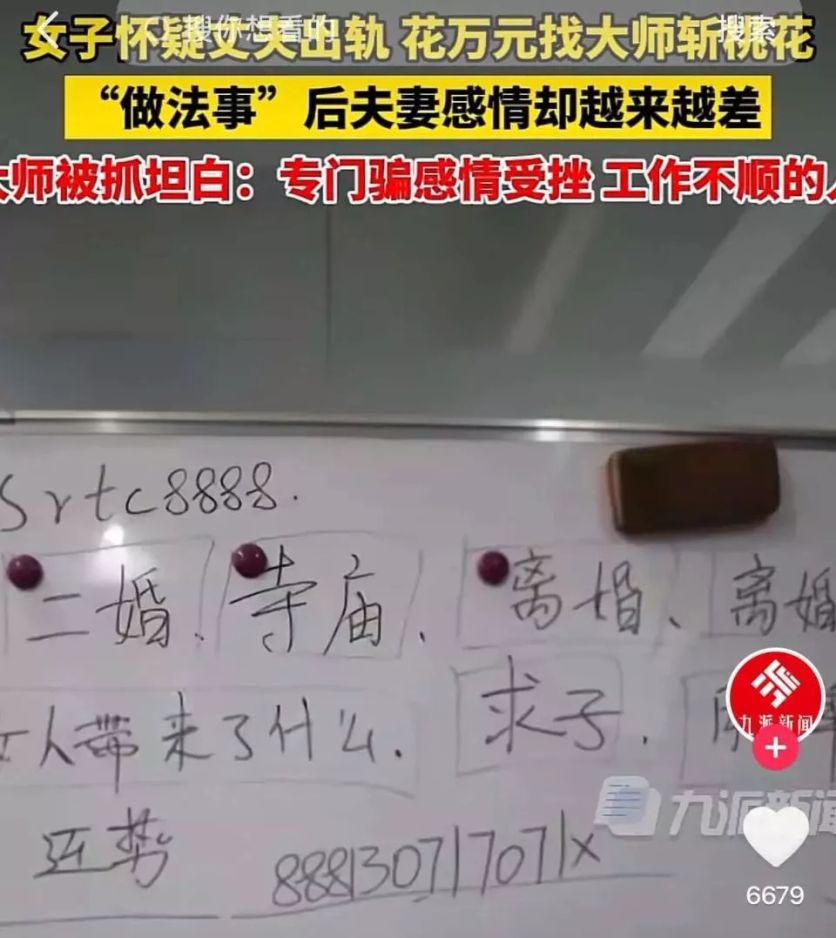 女子怀疑丈夫出轨 花万元找大师斩桃花
搜你想看的
搜索
“做法事”后夫妻感情却越来越差
大师被抓坦白：专门骗感情受挫 工作不顺的人
srtc8888.
二婚、寺庙、离婚、离婚
女人带来了什么.求子.
运势 888130717071x
九派新闻
九派新闻
6679